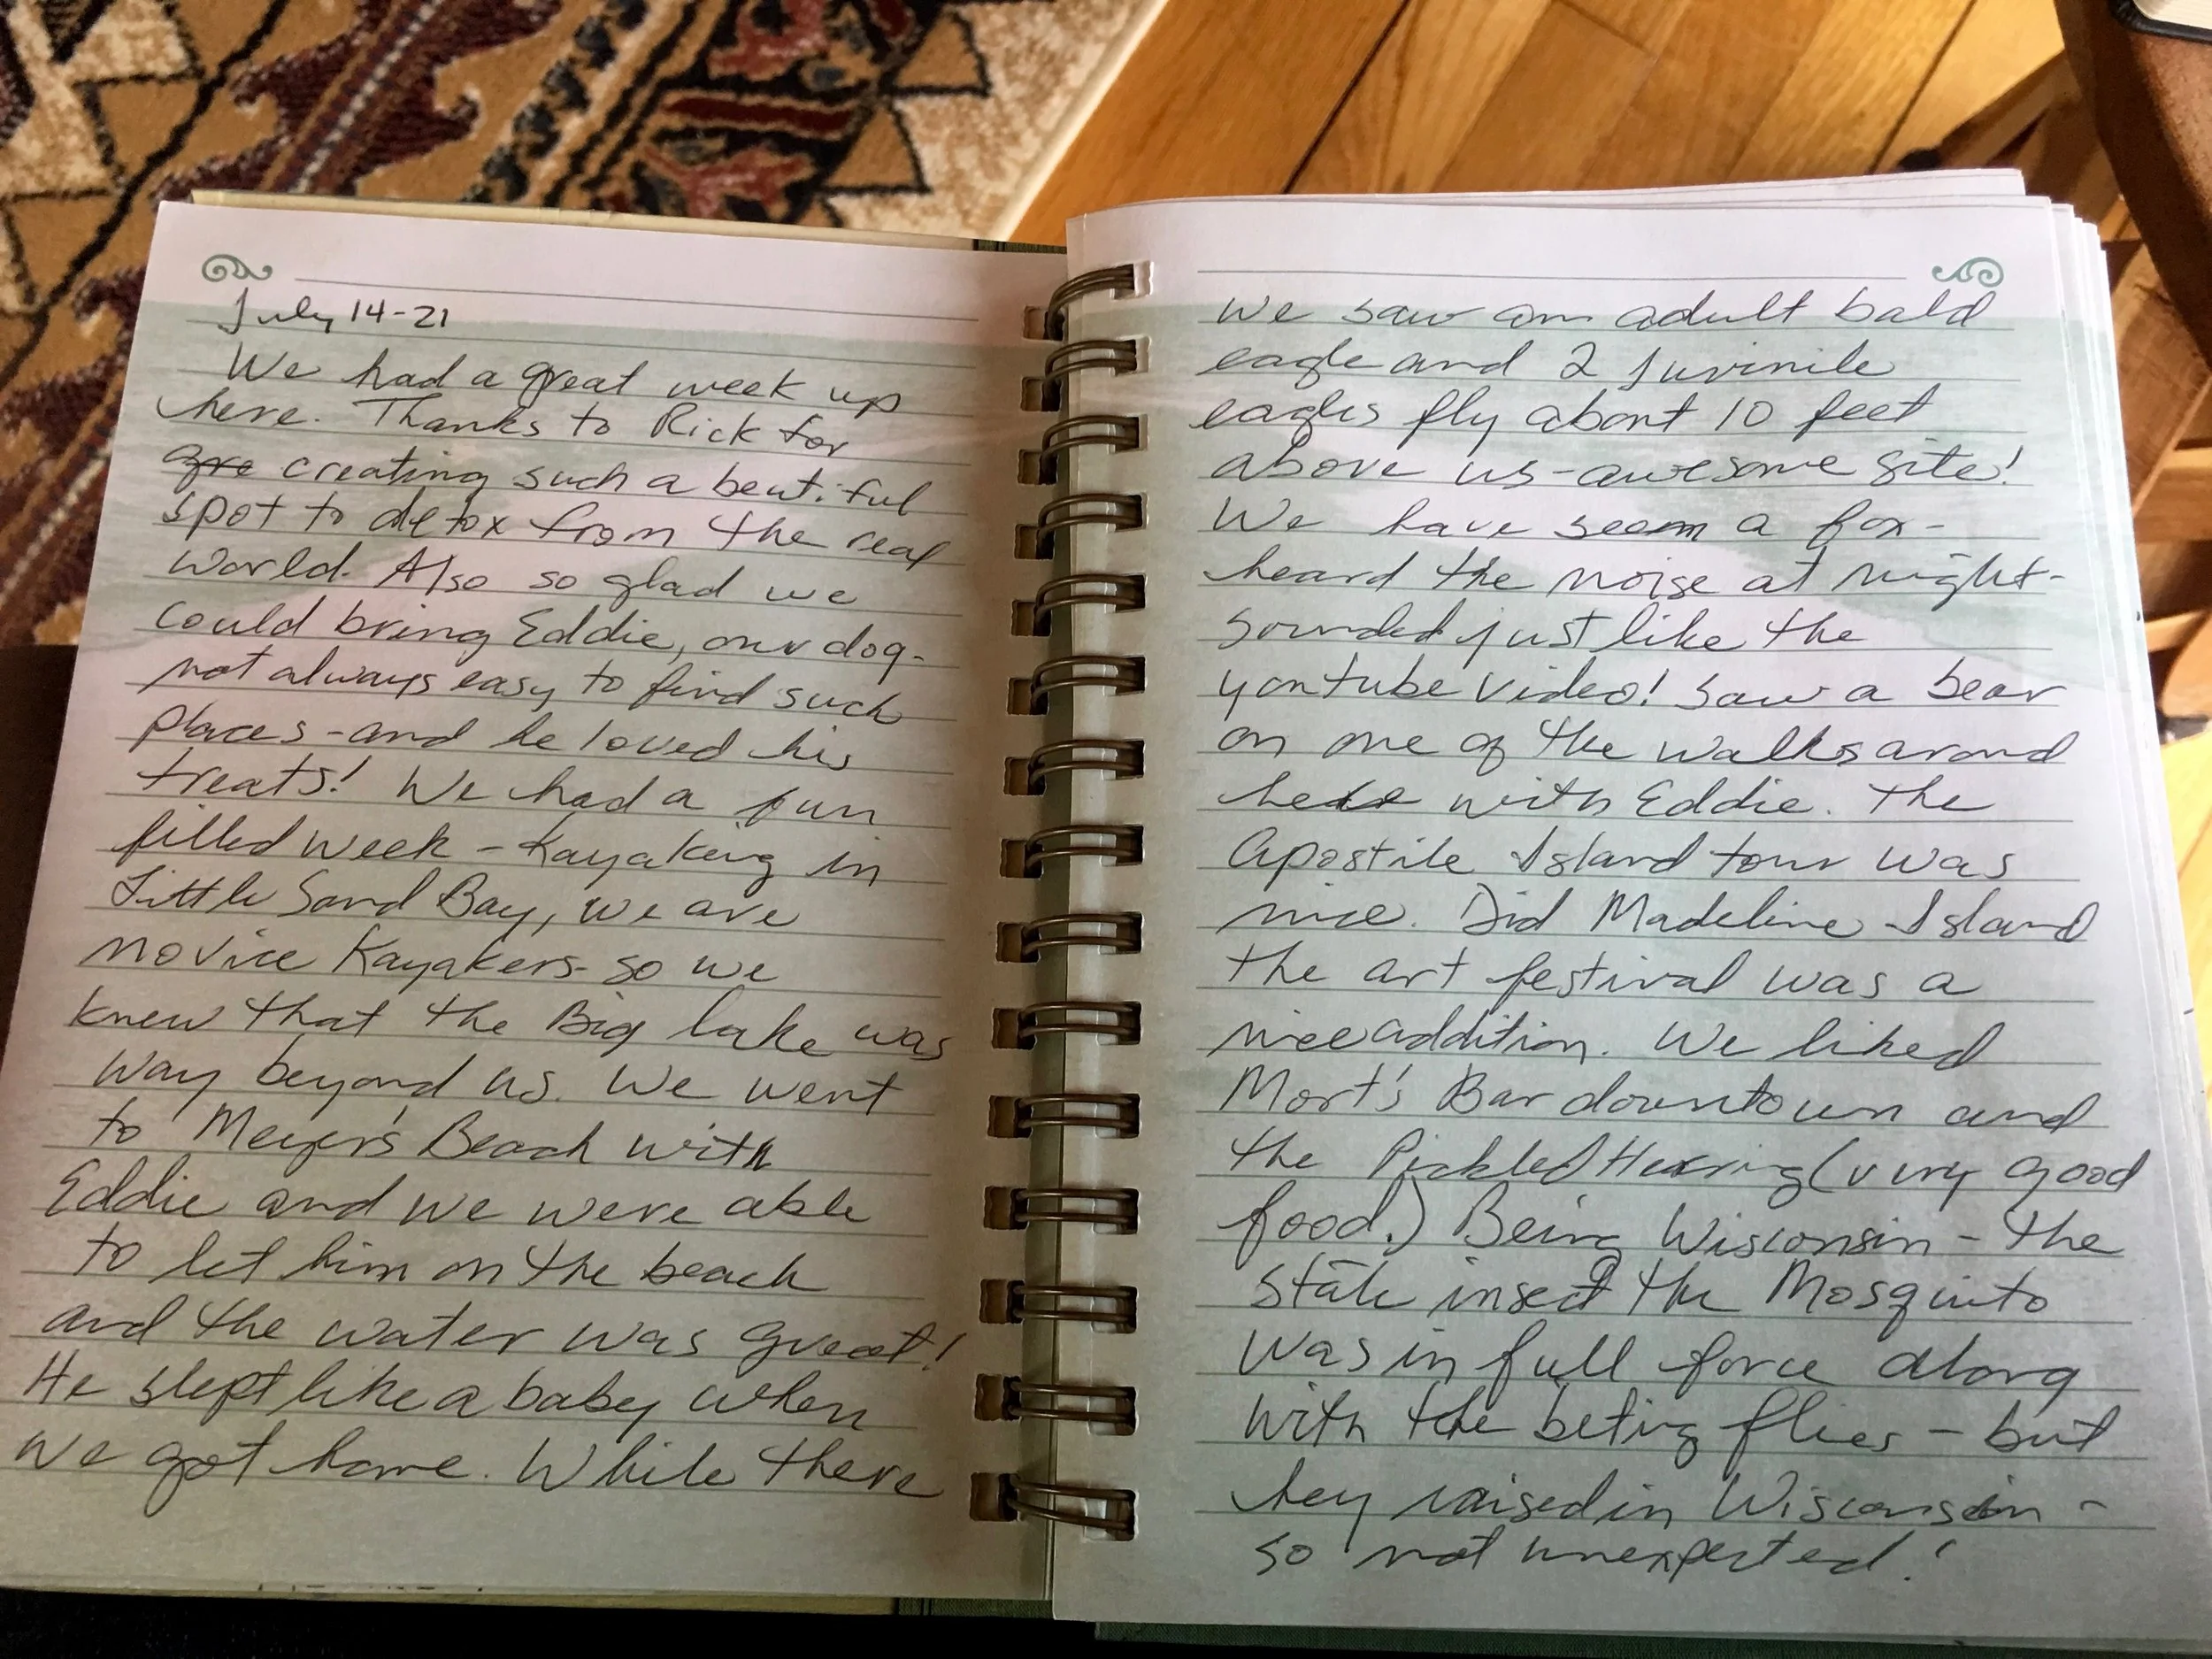 July 14-21
We had a great week up
here. Thanks to Rick for
gre creating such a beutiful
spot to detox from the real
world. Also so glad we
could bring Eddie, our dog-
not always easy to find such
places - and he loved his
treats! We had a fun
filled week - Kayaking in
Little Sand Bay, we are
novice Kayakers - so we
knew that the Big lake was
way beyond us. We went
to Meyer's Beach with
Eddie and we were able
to let him on the beach
and the water was great!
He slept like a baby when
we got home. While there
We saw an adult bald
eagle and 2 Juvinile
eagles fly about 10 feet
above us - awesome site!
We have seen a fox -
heard the noise at night -
sounded just like the
youtube video! Saw a bear
on one of the walks around
here with Eddie. The
Apostile Island tour was
nice. Did Madeline Island
the art festival was a
nice addition. We liked
Mort's Bar downtown and
the Pickled Herring (very good
food.) Being Wisconsin - the
State insect the Mosquito
was in full force along
with the beting flies - but
hey raised in Wisconsin -
so not unexpected!